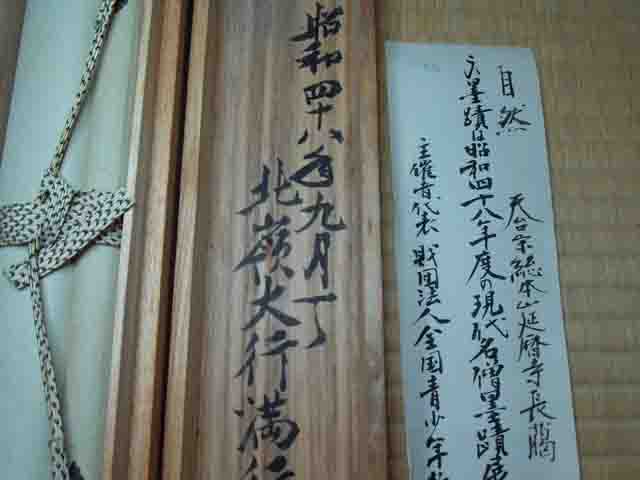 昭和四十八年九月了
北嶺大行満行
自然
天台宗総本山延暦寺長臈
この墨蹟は昭和四十八年度の現代名僧墨蹟展
主催者代表 財団法人全国青少年